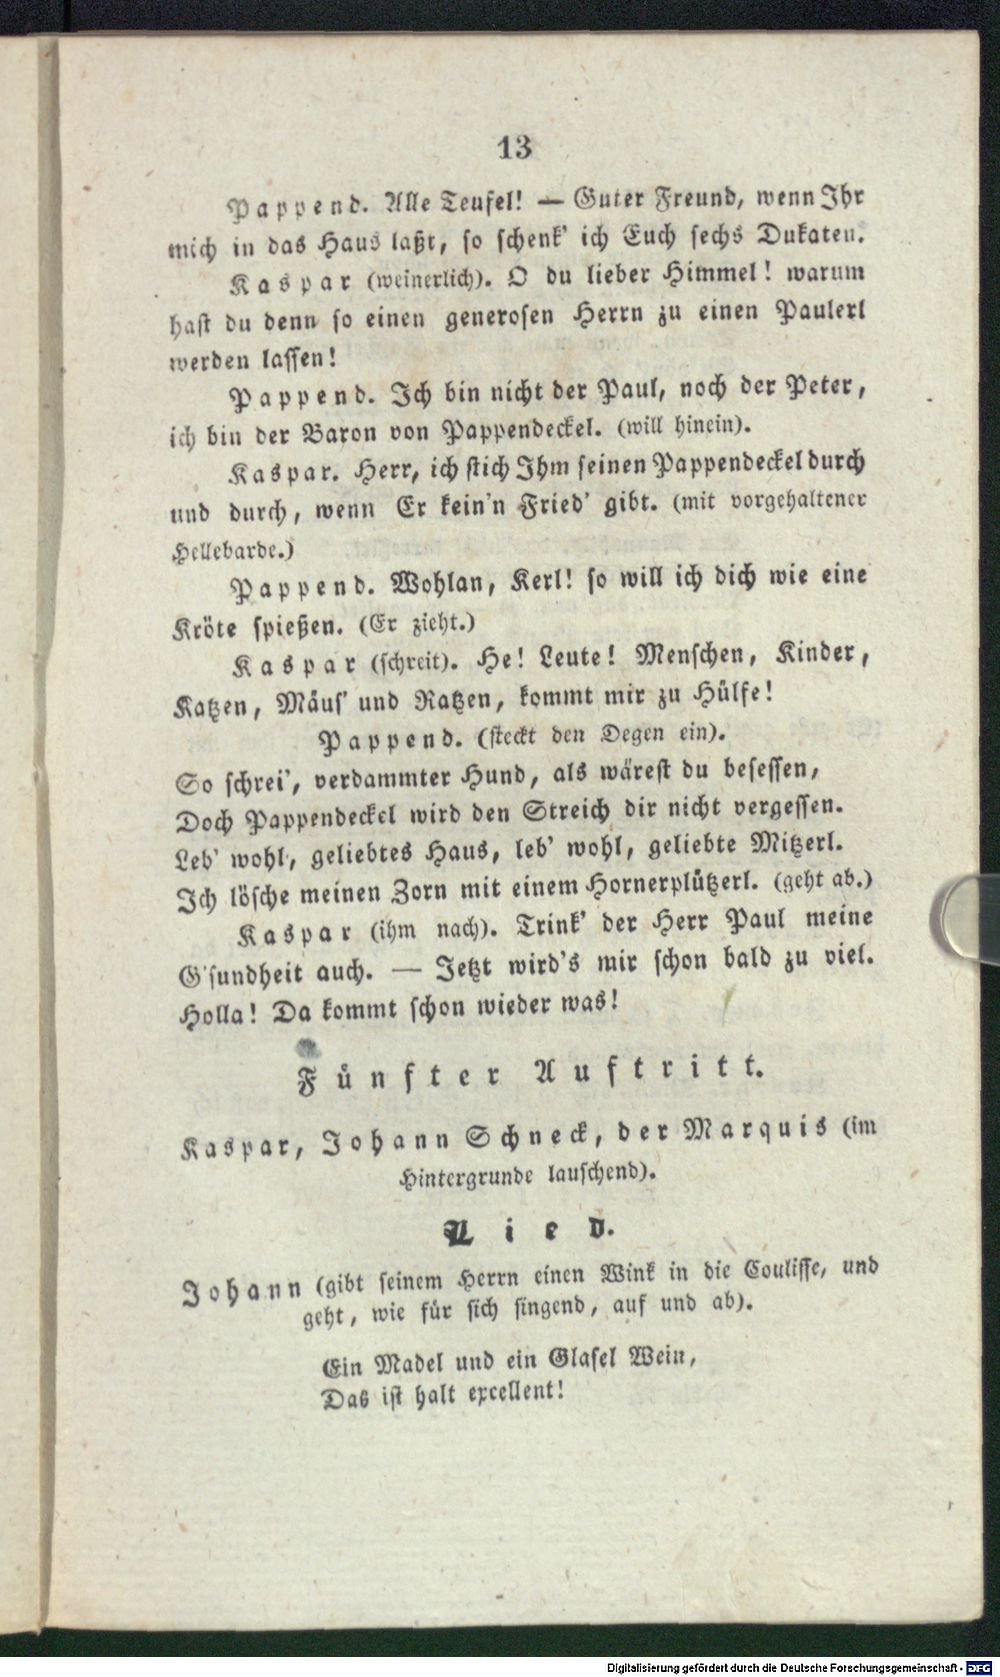 13
Pappend. Alle Teufel! — Guter Freund, wenn Ihr
mich in das Haus laßt, so schenk' ich Euch sechs Dukaten.
Kaspar (weinerlich). O du lieber Himmel! warum
hast du denn so einen generosen Herrn zu einen Paulerl
werden lassen!
Pappend. Ich bin nicht der Paul, noch der Peter,
ich bin der Baron von Pappendeckel. (will hinein).
Kaspar. Herr, ich stich Ihm seinen Pappendeckel durch
und durch, wenn Er kein'n Fried' gibt. (mit vorgehaltener
Hellebarde.)
Pappend. Wohlan, Kerl! so will ich dich wie eine
Kröte spießen. (Er zieht.)
Kaspar (schreit). He! Leute! Menschen, Kinder,
Katzen, Mäus' und Ratzen, kommt mir zu Hülfe!
Pappend. (steckt den Degen ein).
So schrei', verdammter Hund, als wärest du besessen,
Doch Pappendeckel wird den Streich dir nicht vergessen.
Leb' wohl, geliebtes Haus, leb' wohl, geliebte Mitzerl.
Ich lösche meinen Zorn mit einem Hornerplützerl. (geht ab.)
Kaspar (ihm nach). Trink' der Herr Paul meine
G'sundheit auch. — Jetzt wird's mir schon bald zu viel.
Holla! Da kommt schon wieder was!
Fünfter Auftritt.
Kaspar, Johann Schneck, der Marquis (im
Hintergrunde lauschend).
Lied.
Johann (gibt seinem Herrn einen Wink in die Coulisse, und
geht, wie für sich singend, auf und ab).
Ein Madel und ein Glasel Wein,
Das ist halt excellent!
Digitalisierung gefördert durch die Deutsche Forschungsgemeinschaft - DFG